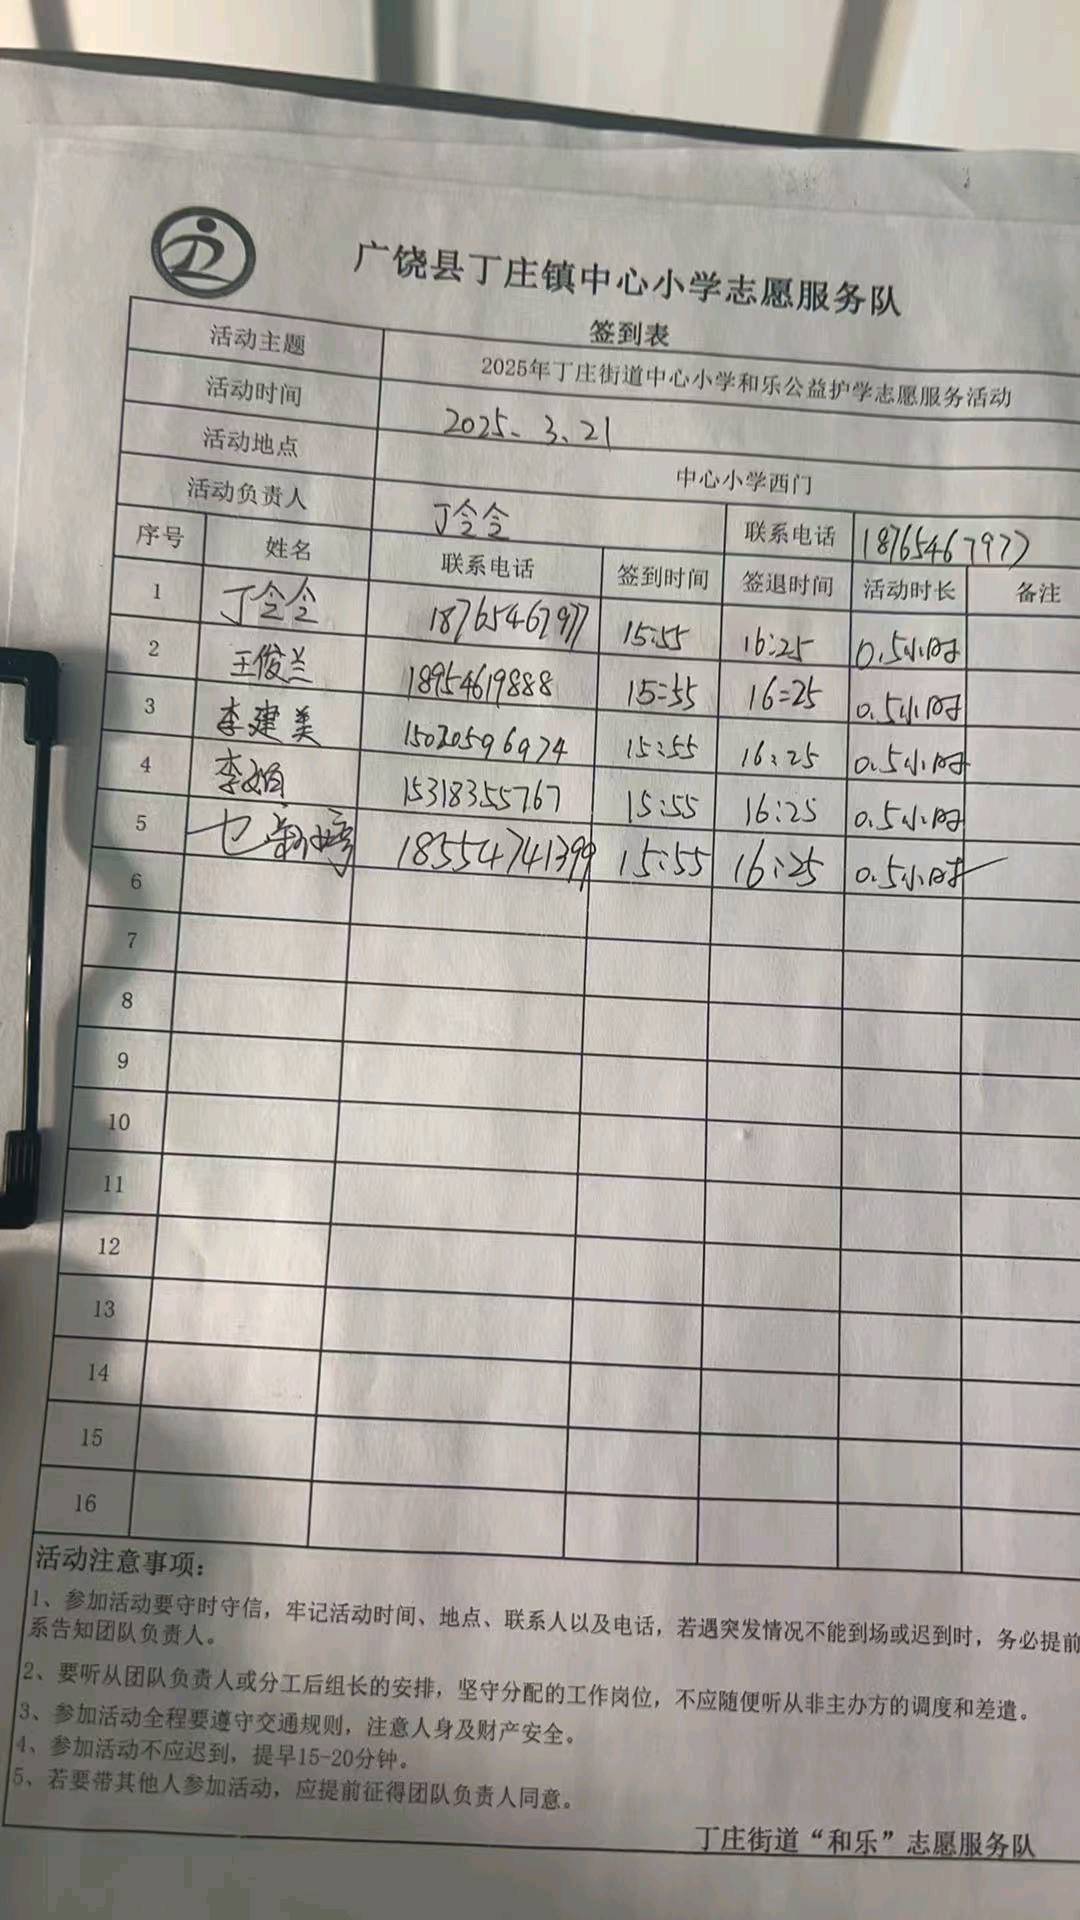 广饶县丁庄镇中心小学志愿服务队
签到表
活动主题 2025年丁庄街道中心小学和乐公益护学志愿服务活动
活动时间 2025、3、21
活动地点 中心小学西门
活动负责人 丁令令 联系电话 18765467977
序号 姓名 联系电话 签到时间 签退时间 活动时长 备注
1 丁令令 18765467977 15:55 16:25 0.5小时
2 王俊兰 18954619888 15:55 16:25 0.5小时
3 李建美 15020596974 15:55 16:25 0.5小时
4 李娟 15318355767 15:55 16:25 0.5小时
5 18554741399 15:55 16:25 0.5小时
6
7
8
9
10
11
12
13
14
15
16
活动注意事项：
1、参加活动要守时守信，牢记活动时间、地点、联系人以及电话，若遇突发情况不能到场或迟到时，务必提前
系告知团队负责人。
2、要听从团队负责人或分工后组长的安排，坚守分配的工作岗位，不应随便听从非主办方的调度和差遣。
3、参加活动全程要遵守交通规则，注意人身及财产安全。
4、参加活动不应迟到，提早15-20分钟。
5、若要带其他人参加活动，应提前征得团队负责人同意。
丁庄街道“和乐”志愿服务队